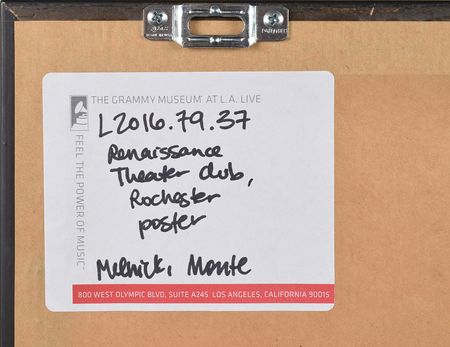 THE GRAMMY MUSEUM AT L.A. LIVE
FEEL THE POWER OF MUSIC
L2016.79.37
Renaissance
Theater club,
Rochester
poster
Melnick, Monte
800 WEST OLYMPIC BLVD, SUITE A245 LOS ANGELES, CALIFORNIA 90015